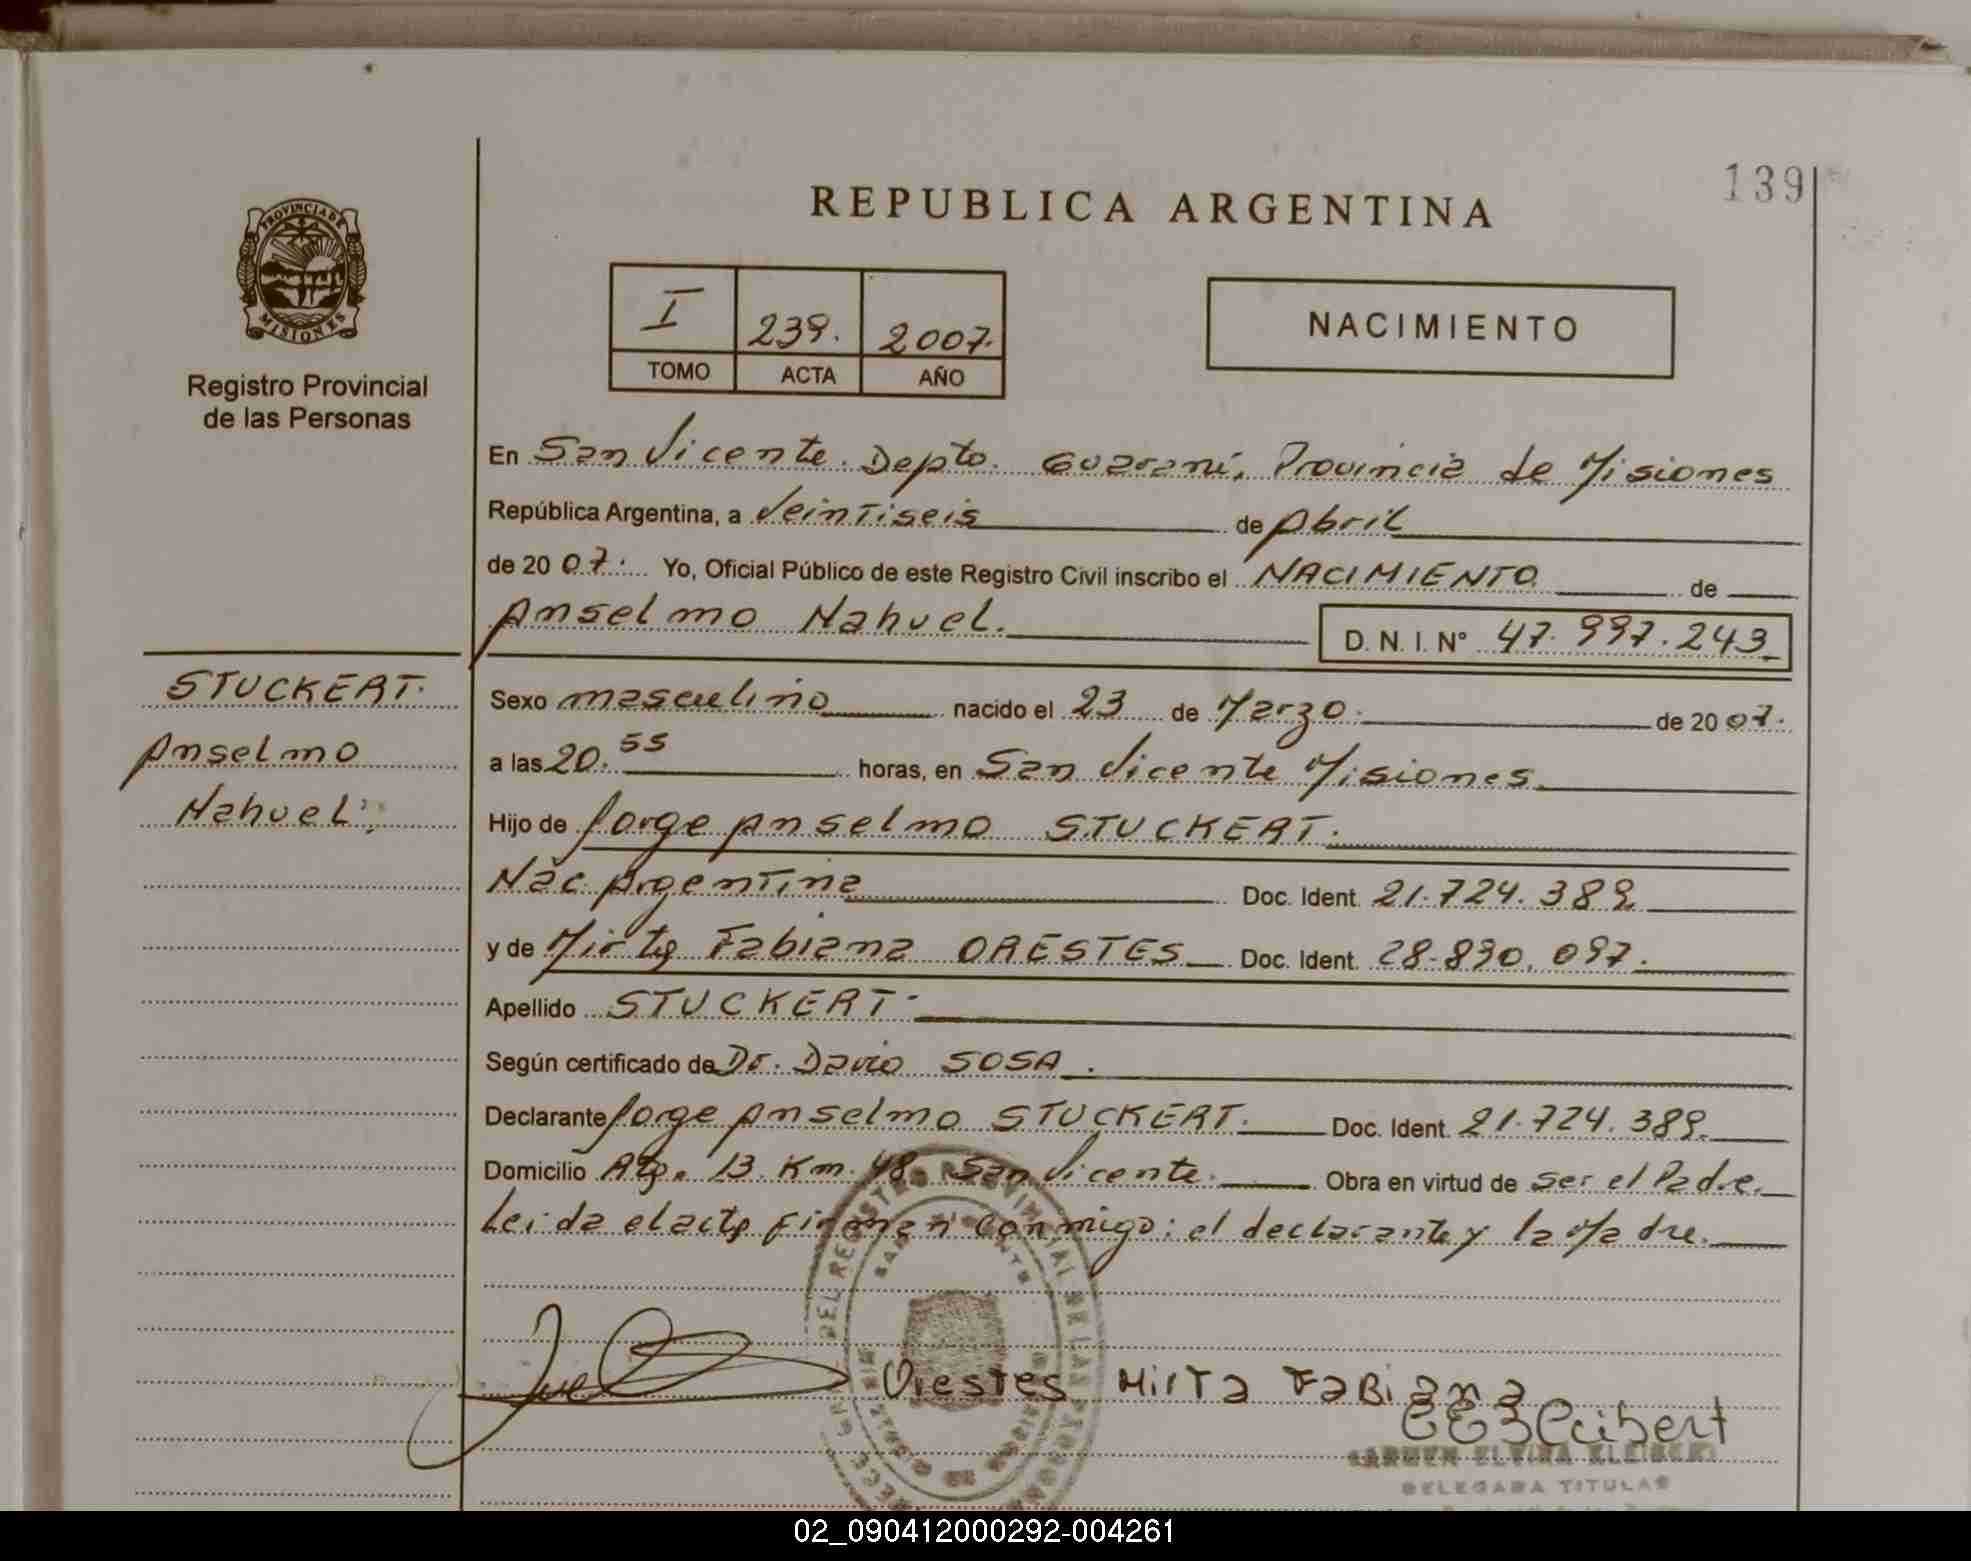 139
REPUBLICA ARGENTINA
PROVINCIA DE
MISIONES
Registro Provincial
de las Personas
I 239. 2007.
TOMO ACTA AÑO
NACIMIENTO
En San Vicente. Depto. Guaraní, Provincia de Misiones
República Argentina, a Veintiseis de Abril
de 2007. Yo, Oficial Público de este Registro Civil inscribo el NACIMIENTO de
Anselmo Nahuel. D. N. I. N° 47.997.243
STUCKERT.
Anselmo
Nahuel.
Sexo masculino nacido el 23 de Marzo. de 2007.
a las 20.55 horas, en San Vicente Misiones.
Hijo de Jorge Anselmo STUCKERT.
Nac. Argentina Doc. Ident. 21.724.389.
y de Mirta Fabiana ORESTES Doc. Ident. 28.890.097.
Apellido STUCKERT.
Según certificado de Dr. David SOSA.
Declarante Jorge Anselmo STUCKERT. Doc. Ident. 21.724.389.
Domicilio Rta. 13. Km. 48. San Vicente. Obra en virtud de ser el Padre.
Leida el acta firman conmigo: el declarante y la Madre.
Orestes Mirta Fabiana
CARMEN ELVIRA KLEIBERT
DELEGADA TITULAR
02_090412000292-004261